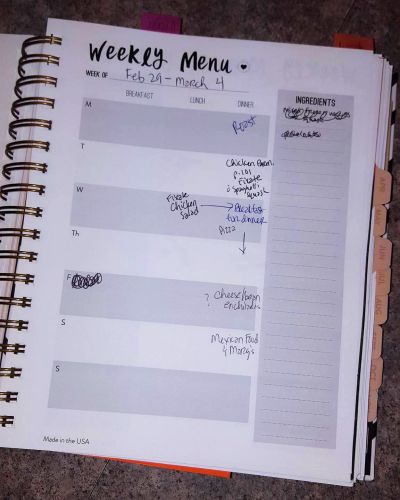 Weekly Menu
WEEK OF Feb 29 - March 4
BREAKFAST LUNCH DINNER
INGREDIENTS
M
Roast
T
Chicken Parm.
p. 101
Fixate
Spaghetti
Squash
W
Fixate
Chicken
Salad
Breakfast
for dinner
Th
Pizza
F
? Cheese/bean
enchiladas
S
Mexican Food
& Marg's
S
Made in the USA
APR
JUN
JUL
AUG